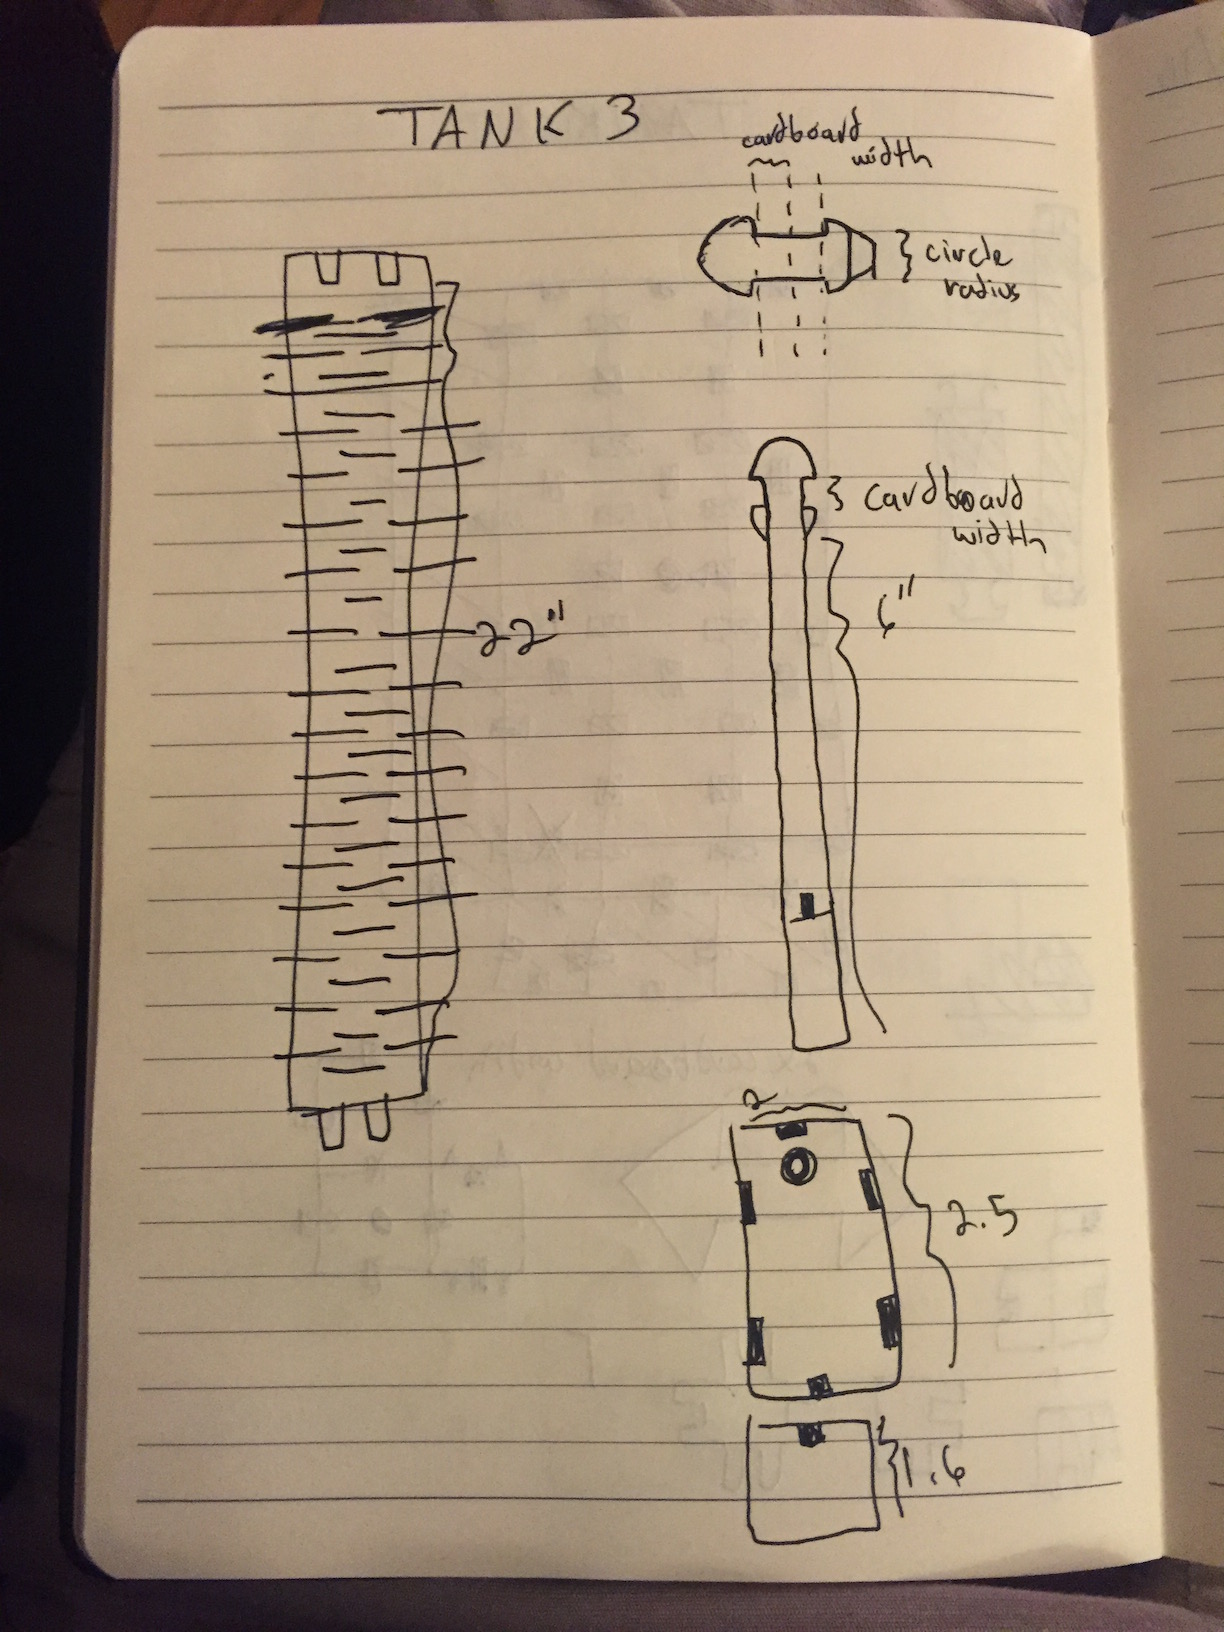 TANK 3
cardboard
width
circle
radius
cardboard
width
22"
6"
2
2.5
1.6